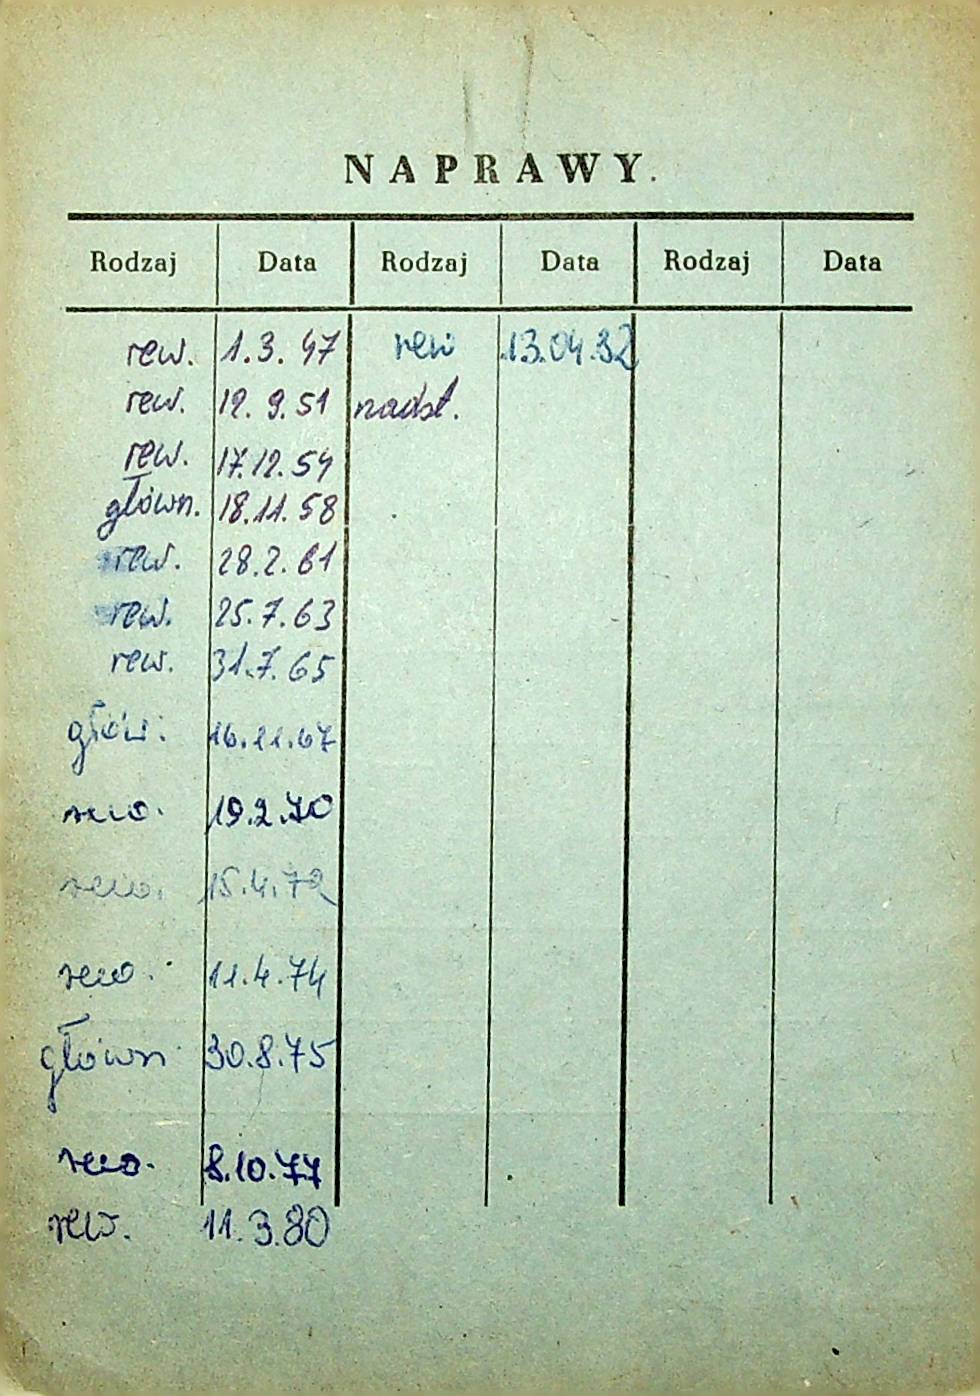 NAPRAWY.
Rodzaj Data Rodzaj Data Rodzaj Data
rew. 1.3.47 rew 13.04.82
rew. 12.9.51 nadst.
rew. 17.12.54
główn. 18.11.58
rew. 28.2.61
rew. 25.7.63
rew. 31.7.65
głów. 16.11.67
rew. 19.2.70
rew. 15.4.72
rew. 11.4.74
główn 30.8.75
rew. 8.10.77
rew. 11.3.80